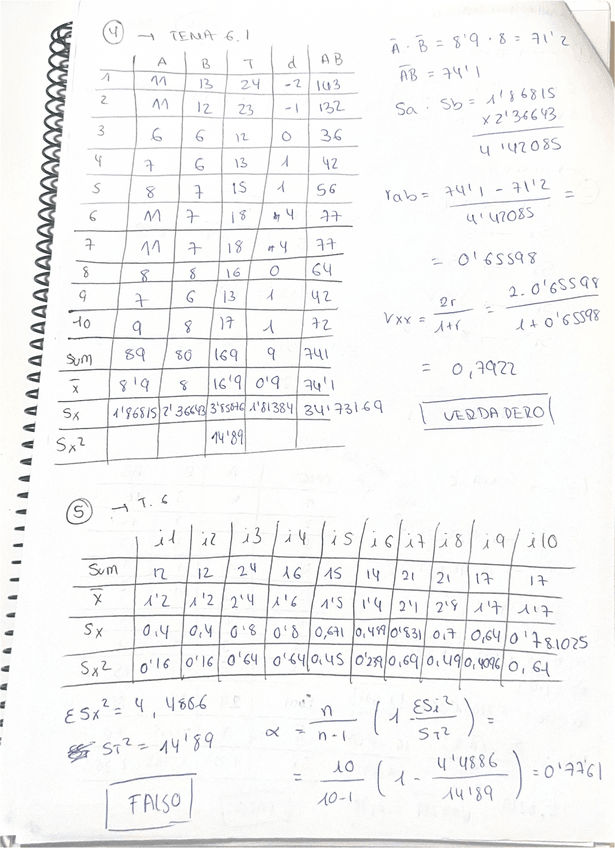 4 → TEMA 6.1
A B T d AB
1 11 13 24 -2 143
2 11 12 23 -1 132
3 6 6 12 0 36
4 7 6 13 1 42
5 8 7 15 1 56
6 11 7 18 4 77
7 11 7 18 4 77
8 8 8 16 0 64
9 7 6 13 1 42
10 9 8 17 1 72
Sum 89 80 169 9 741
x̄ 8'9 8 16'9 0'9 74'1
Sx 1'86815 2'36643 3'85876 1'81384 34'73169
Sx² 14'89
Ā · B̄ = 8'9 · 8 = 71'2
A̅B̅ = 74'1
Sa · Sb = 1'86815
x2'36643
4'42085
rab = 74'1 - 71'2 / 4'42085 =
= 0'65598
rxx = 2r / 1+r = 2·0'65598 / 1+0'65598
= 0,7922
VERDADERO
5 → T. 6
i1 i2 i3 i4 i5 i6 i7 i8 i9 i10
Sum 12 12 24 16 15 14 21 21 17 17
x̄ 1'2 1'2 2'4 1'6 1'5 1'4 2'1 2'8 1'7 1'7
Sx 0,4 0,4 0'8 0'8 0,671 0,489 0'831 0,7 0,64 0'781025
Sx² 0'16 0'16 0'64 0'64 0,45 0'239 0,69 0,49 0,4096 0,61
ΣSx² = 4,4886
ST² = 14'89
FALSO
α = n / n-1 (1 - ΣSi² / ST²) =
= 10 / 10-1 (1 - 4'4886 / 14'89) = 0'7761